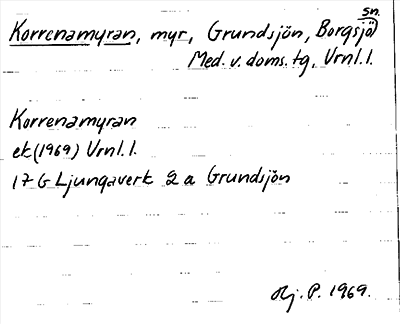 Korrenamyran, myr, Grundsjön, Borgsjö sn.
Med. v. doms. tg, Vrnl. l.
Korrenamyran
ek (1969) Vrnl. l.
17 G Ljungaverk 2 a Grundsjön
Hj. P. 1969.